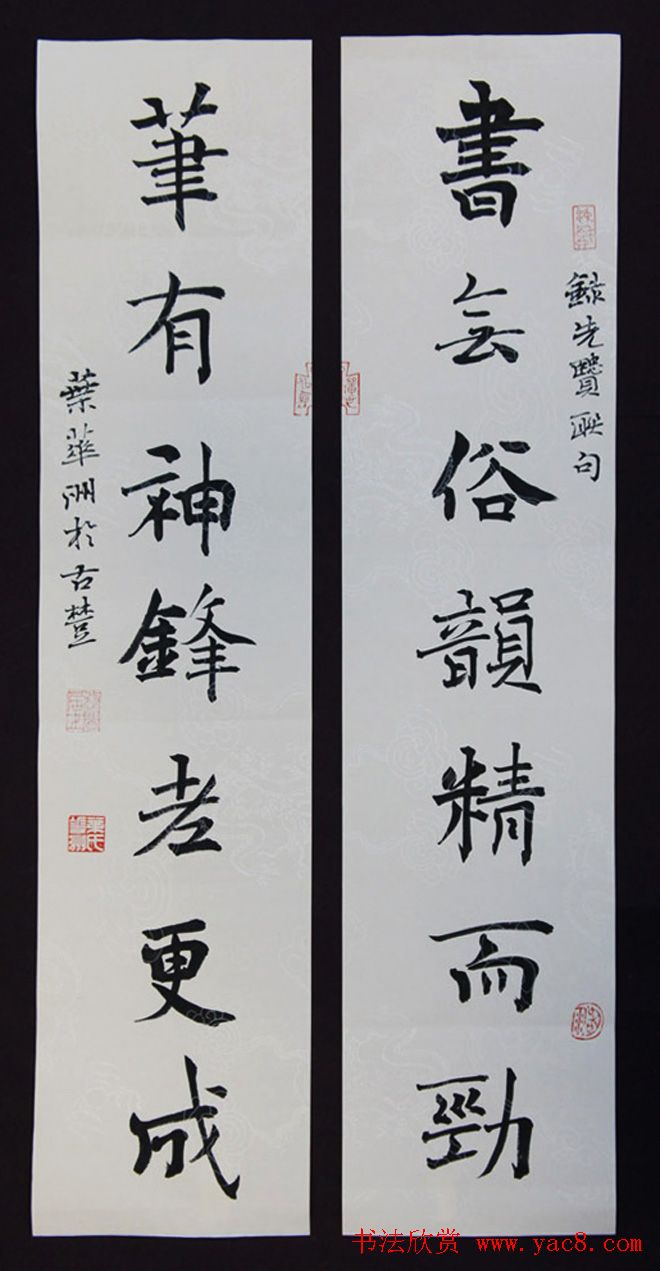 錄先賢聯句
書無俗韻精而勁
筆有神鋒老更成
葉華洲於古
书法欣赏 www.yac8.com